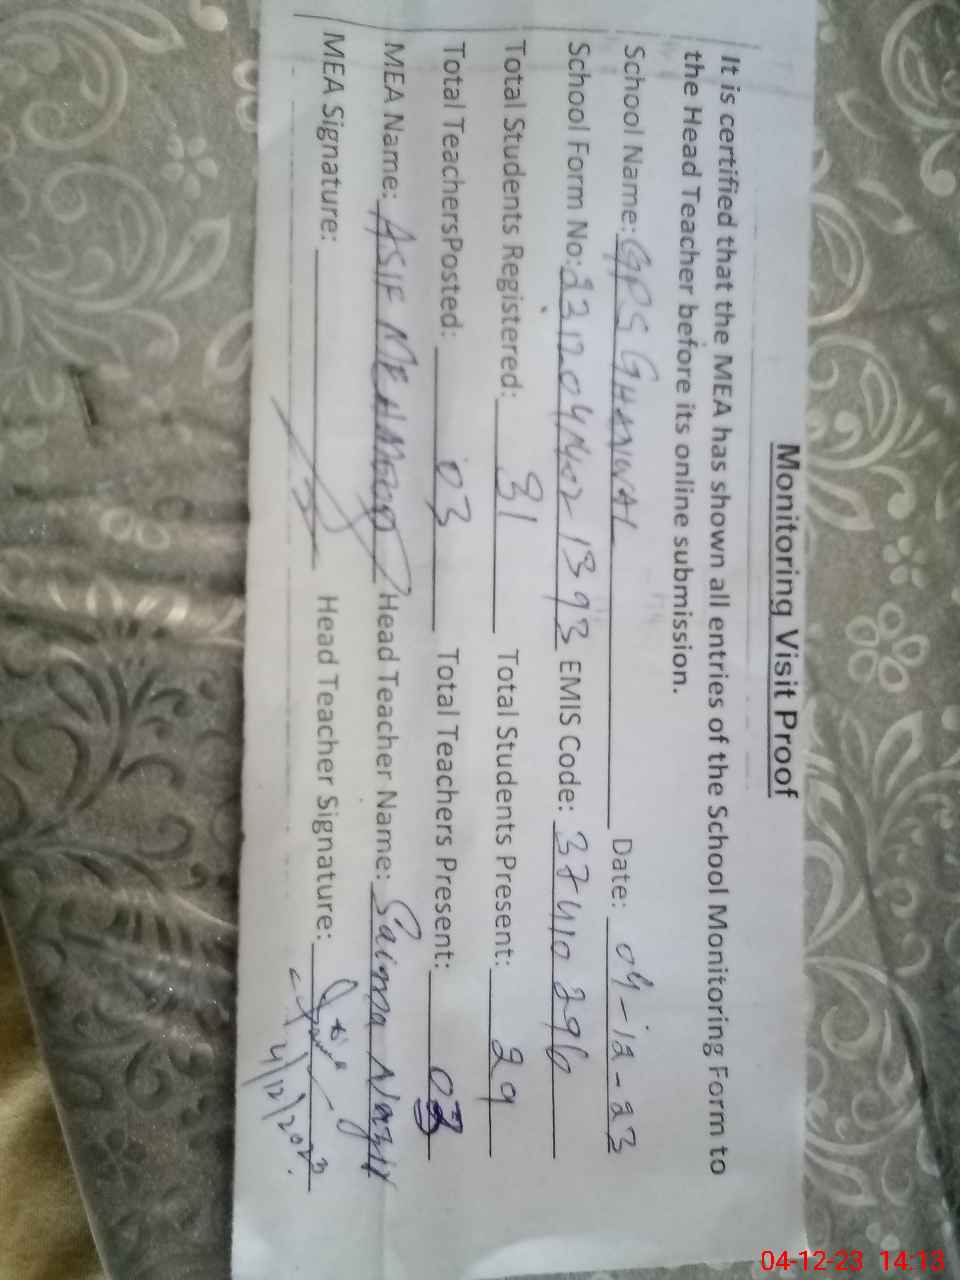 Monitoring Visit Proof
It is certified that the MEA has shown all entries of the School Monitoring Form to
the Head Teacher before its online submission.
School Name: GPS GHANWAL Date: 04-12-23
School Form No: EMIS Code: 37410296
Total Students Registered: 31 Total Students Present: 29
Total TeachersPosted: 03 Total Teachers Present:
MEA Name: ASIF MEHMOOD Head Teacher Name: Saima Nazir
MEA Signature: Head Teacher Signature:
4/12/2023
04-12-23 14:13